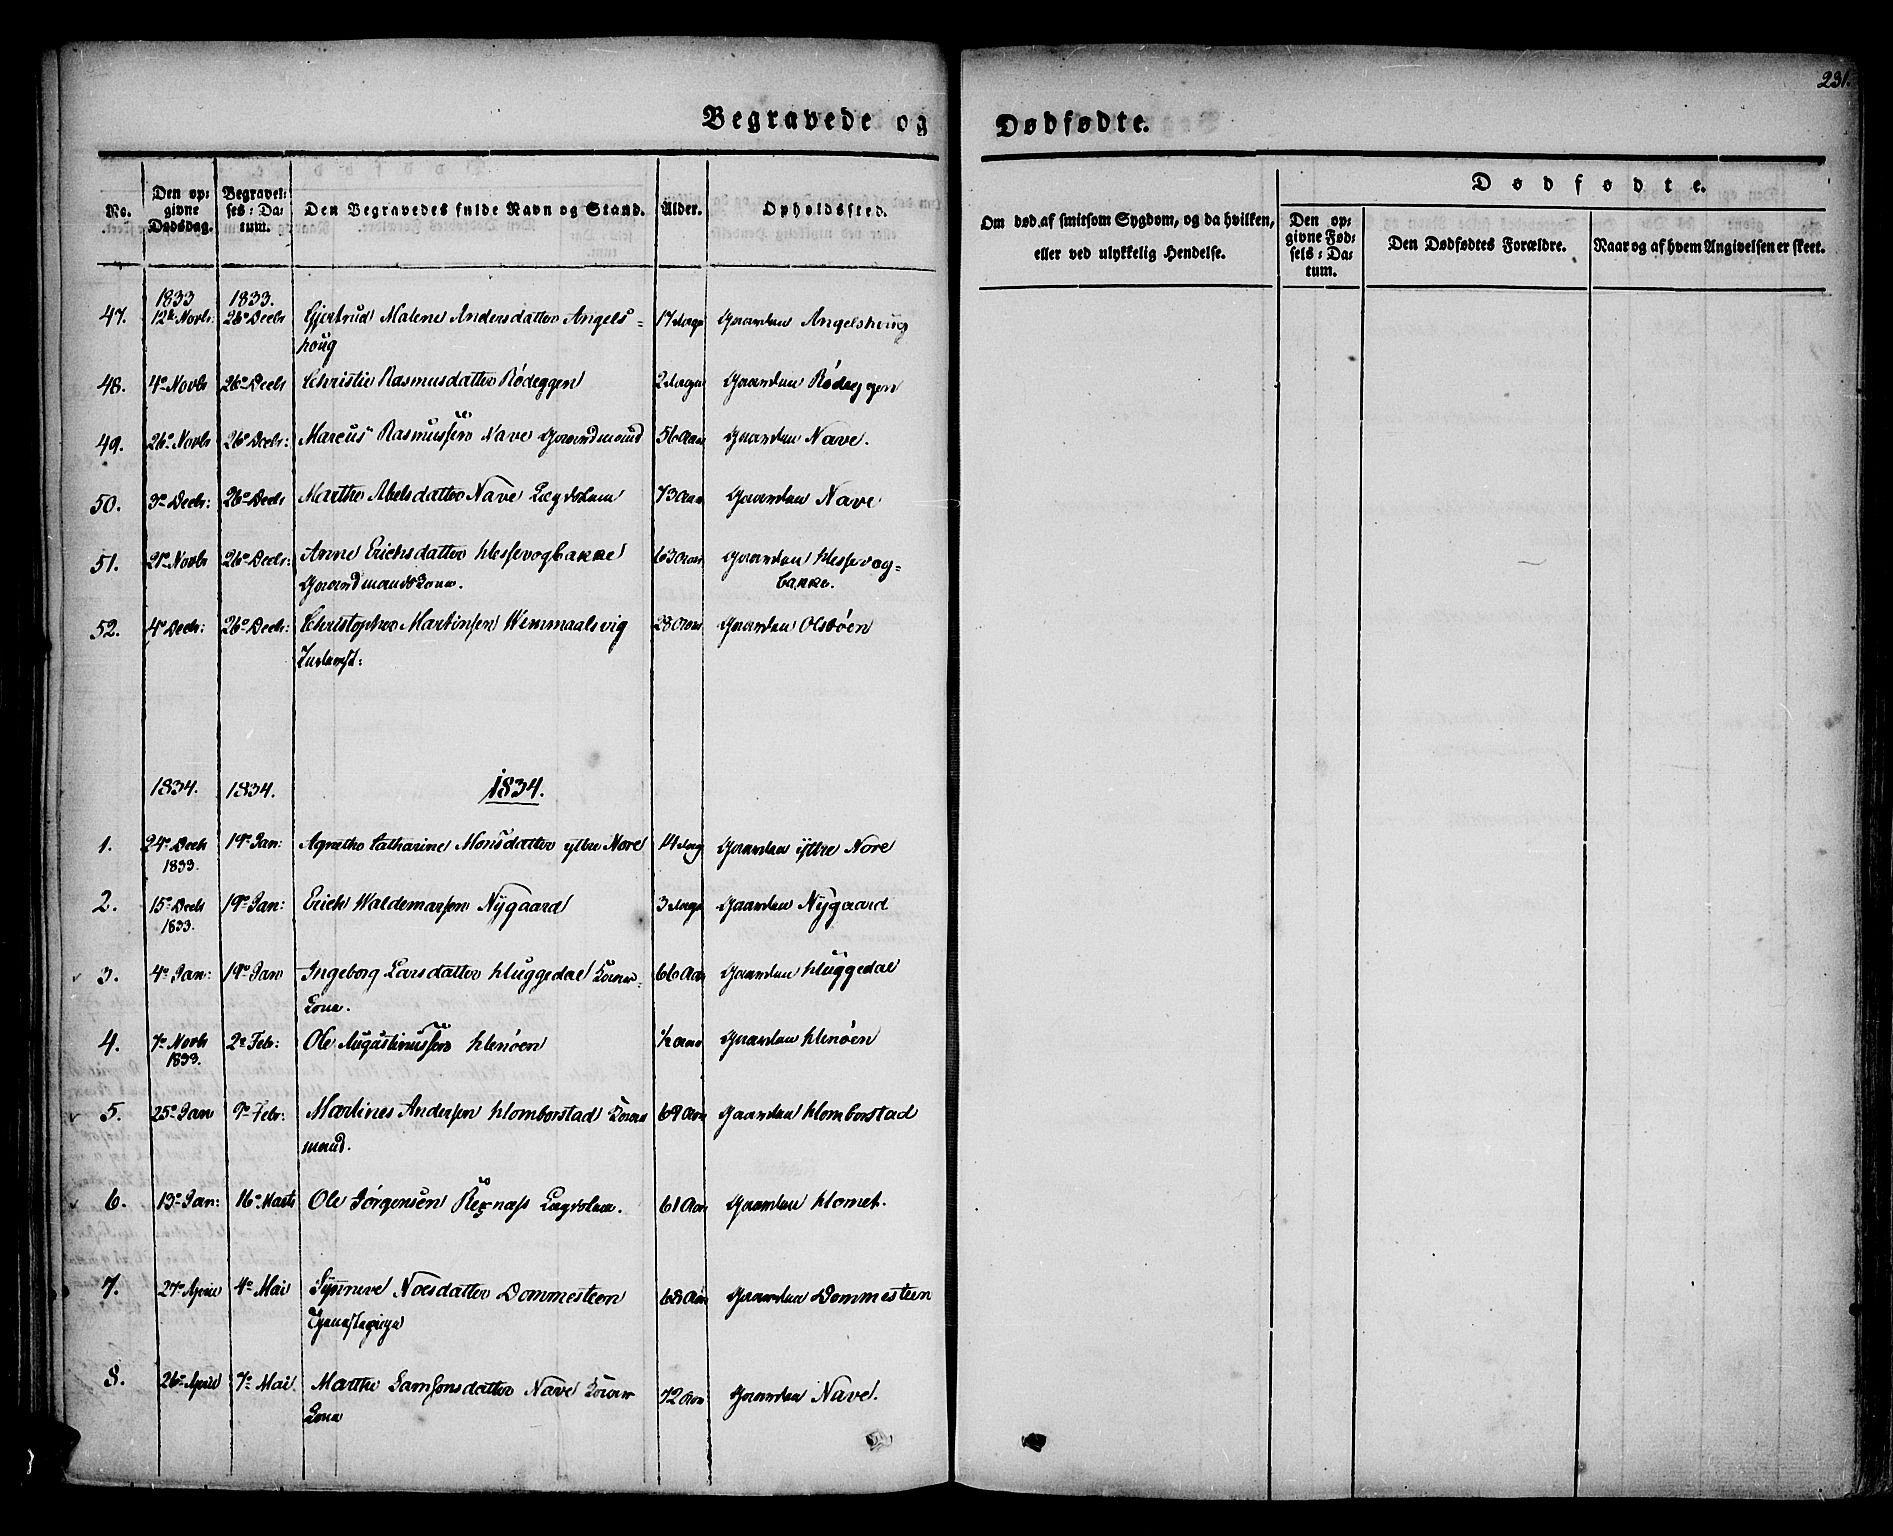 231.
Begravede og Dødfødte.
No.
Den op-
givne
Dødsdag.
Begravel-
ses-Da-
tum.
Den Begravedes fulde Navn og Stand.
Alder.
Opholdssted.
Om død af smitsom Sygdom, og da hvilken,
eller ved ulykkelig Hendelse.
Dødfødte.
Den op-
givne Fød-
sels-Da-
tum.
Den Dødfødtes Forældre.
Naar og af hvem Angivelsen er skeet.
1833 1833.
47. 12te Novb: 26de Decb Gjertrud Malene Andersdatter Angels- 17 dage Gaarden Angelshoug
houg
48. 4de Novb 26de Decb Christie Rasmusdatter Rödeggen 2 dage Gaarden Rödeggen
49. 26de Novb 26de Decb: Marcus Rasmussen Nave Gaardmand 56 Aar Gaarden Nave.
50. 3de Decb: 26de Decb Marthe Abelsdatter Nave 73 Aar Gaarden Nave
51. 21de Novb 26de Decb: Anne Erichsdatter Hessevogbakke 63 Aar Gaarden Hessevog-
Gaardmandskone. bakke.
52. 4de Decb: 26de Decb: Christopher Martinsen Wemmaalsvig 28 Aar Gaarden Olsböen
1834. 1834. 1834.
1. 24de Decb 19de Jan: Agnethe Catharine Monsdatter yttre Nore 14 dag Gaarden yttre Nore
1833.
2. 15de Decb 19de Jan: Erich Waldemarsen Nygaard 3 dage Gaarden Nygaard
1833.
3. 4de Jan: 19de Jan Ingeborg Larsdatter Huggedal 66 Aar Gaarden Huggedal
Kone.
4. 7de Novb 2de Febr: Ole Augustinussen Henöen ½ Aar Gaarden Henöen
1833.
5. 25de Jan 9de Febr: Martines Andersen Homborstad 69 Aar Gaarden Homborstad
mand.
6. 13de Jan: 16de Marts Ole Jörgensen Rexnæss 61 Aar Gaarden Homet.
7. 27de April 4de Mai Synneve Noesdatter Dommesteen 68 Aar Gaarden Dommesteen
Tjenestepige
8. 26de April 7de Mai. Marthe Samsonsdatter Nave 72 Aar Gaarden Nave.
Kone